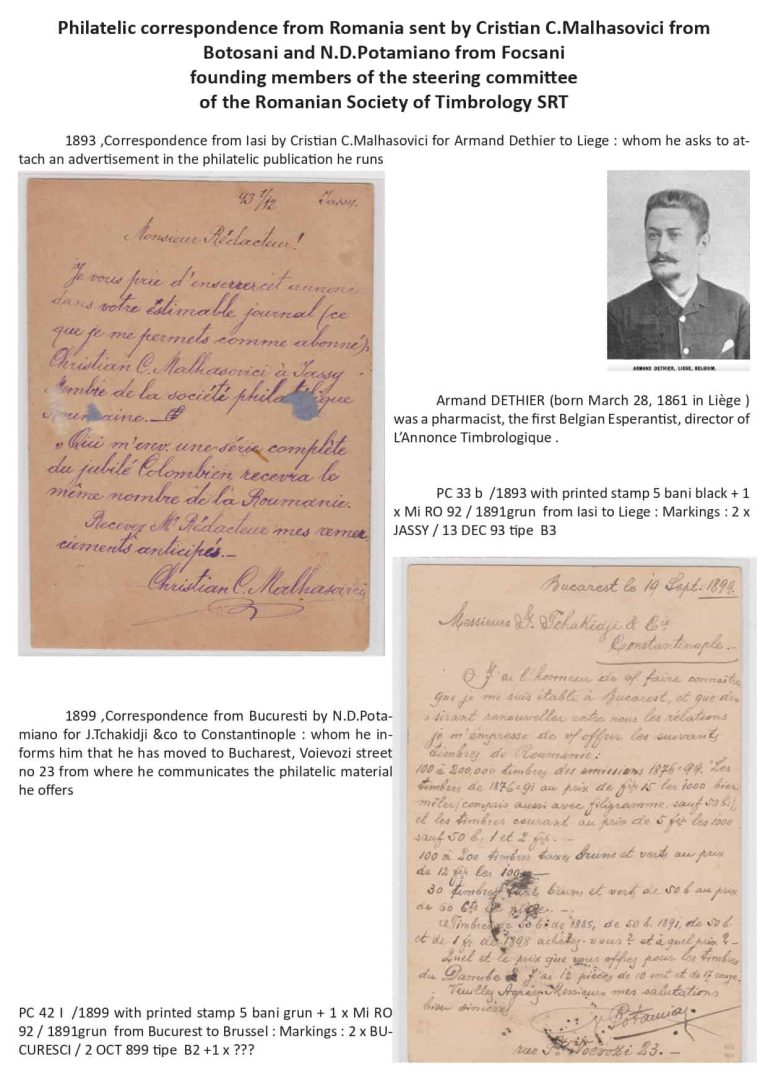 Philatelic correspondence from Romania sent by Cristian C.Malhasovici from
Botosani and N.D.Potamiano from Focsani
founding members of the steering committee
of the Romanian Society of Timbrology SRT
1893 ,Correspondence from Iasi by Cristian C.Malhasovici for Armand Dethier to Liege : whom he asks to at-
tach an advertisement in the philatelic publication he runs
93 1/12 Jassy.
Monsieur Rédacteur!
Je vous prie d'enserrer cet annonc
dans votre estimable journal (ce
que je me permets comme abonné);
Christian C. Malhasovici à Jassy
Membre de la société philatélique
Roumaine.—
„Qui m'env. une série complète
du jubilé Colombien recevra le
même nombre de la Roumanie.
Recevez Mr Rédacteur mes remer
ciements anticipés.—
Christian C. Malhasovici
ARMAND DETHIER, LIEGE, BELGIUM.
Armand DETHIER (born March 28, 1861 in Liège )
was a pharmacist, the first Belgian Esperantist, director of
L'Annonce Timbrologique .
PC 33 b /1893 with printed stamp 5 bani black + 1
x Mi RO 92 / 1891grun from Iasi to Liege : Markings : 2 x
JASSY / 13 DEC 93 tipe B3
1899 ,Correspondence from Bucuresti by N.D.Pota-
miano for J.Tchakidji &co to Constantinople : whom he in-
forms him that he has moved to Bucharest, Voievozi street
no 23 from where he communicates the philatelic material
he offers
PC 42 I /1899 with printed stamp 5 bani grun + 1 x Mi RO
92 / 1891grun from Bucurest to Brussel : Markings : 2 x BU-
CURESCI / 2 OCT 899 tipe B2 +1 x ???
Bucarest le 19 Sept. 1899.
Messieurs J. Tchakidji & Cie
Constantinople.—
J'ai l'honneur de vs faire connaître
que je me suis établi à Bucarest, et que dé
sirant renouveller entre nous les relations
je m'empresse de vs offrir les suivants
timbres de Roumanie:
100 à 200.000 timbres des emissions 1876-99. Les
timbres de 1876-91 au prix de frs 15 les 1000 bien
mêler (compris aussi avec filigramme, sauf 50 b.),
et les timbres courant au prix de 5 frs les 1000
sauf 50 b, 1 et 2 frs. —
100 à 200 timbres taxes bruns et verts au prix
de 12 frs les 100
30 timbres taxe bruns et vert, de 50 b au prix
de 60 cts
Timbres de 50 b. de 1885, de 50 b. 1891, de 50 b.
et de 1 fr de 1898 achetez-vous? et à quel prix? —
Quel et le prix que vous offrez pour les timbres
du Danube J'ai 12 pièces de 10 vert et de 17 rouge.
Veuillez Agréez Messieurs mes salutations
bien sincères
Potamiano
rue Voevozi 23. —